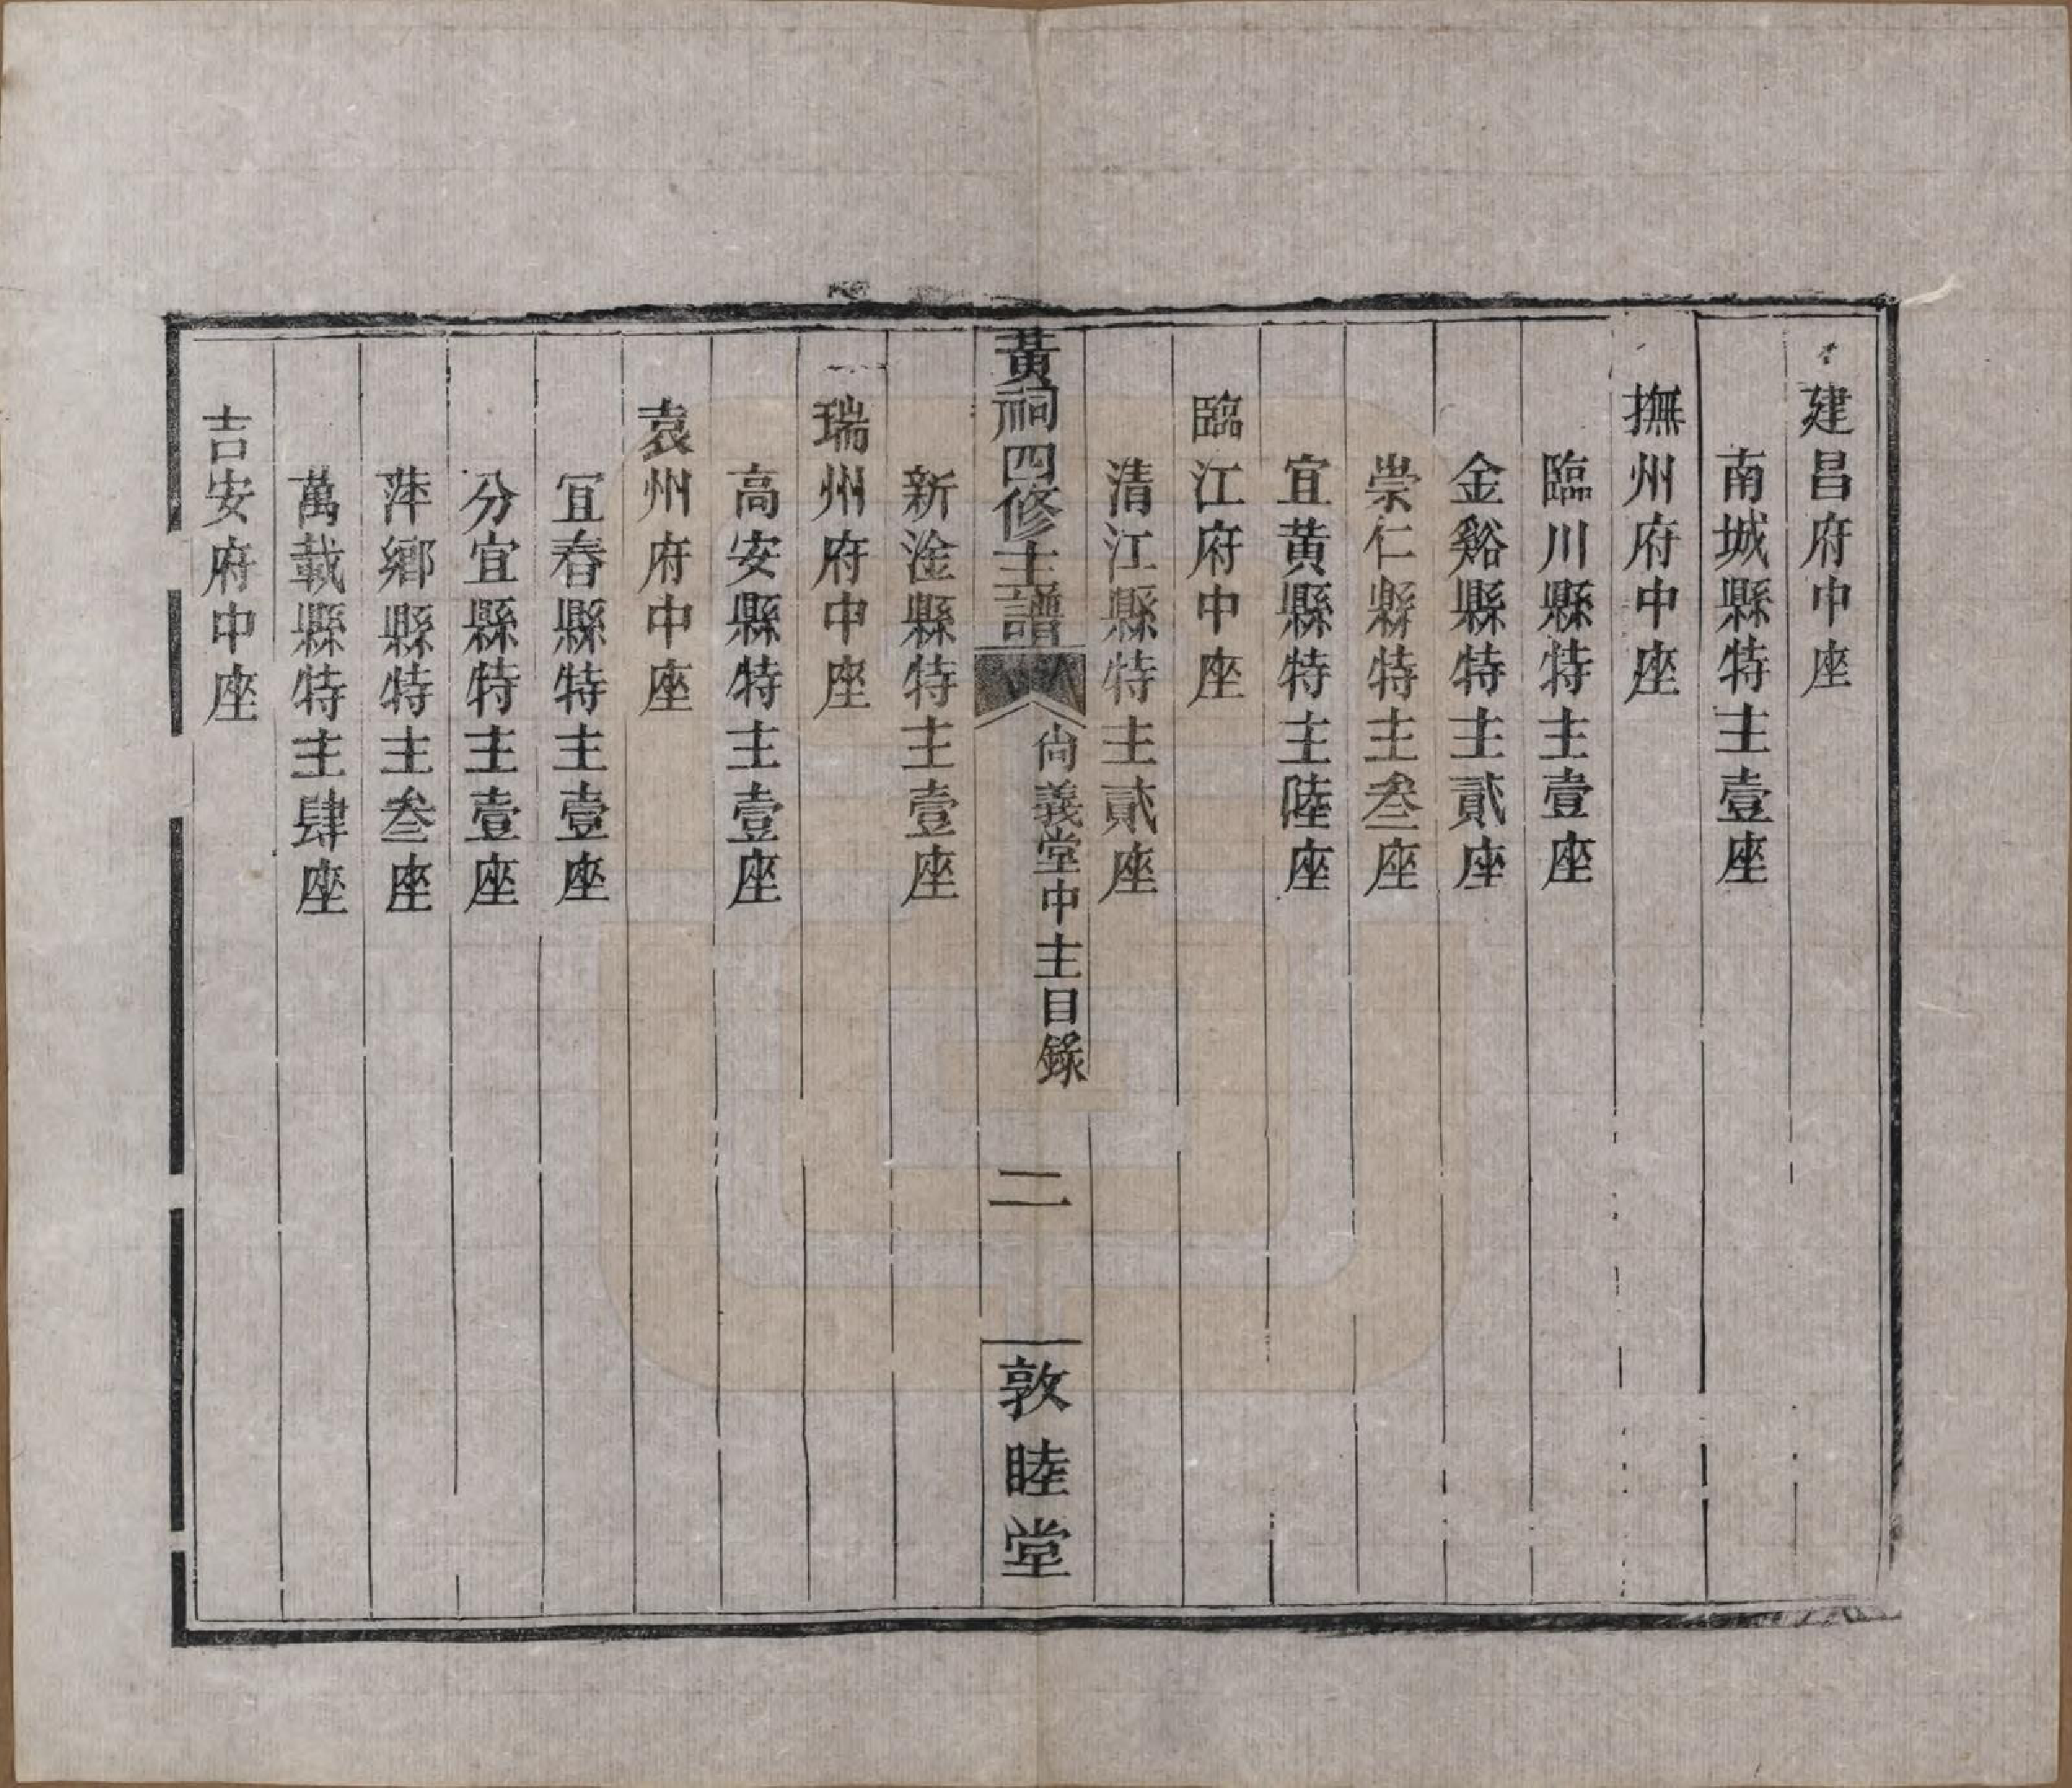 建昌府中座
南城縣特主壹座
撫州府中座
臨川縣特主壹座
金谿縣特主貳座
崇仁縣特主叁座
宜黃縣特主陸座
臨江府中座
清江縣特主貳座
黃祠四修主譜
尚義堂中主目錄
二
敦睦堂
新淦縣特主壹座
瑞州府中座
高安縣特主壹座
袁州府中座
宜春縣特主壹座
分宜縣特主壹座
萍鄉縣特主叁座
萬載縣特主肆座
吉安府中座